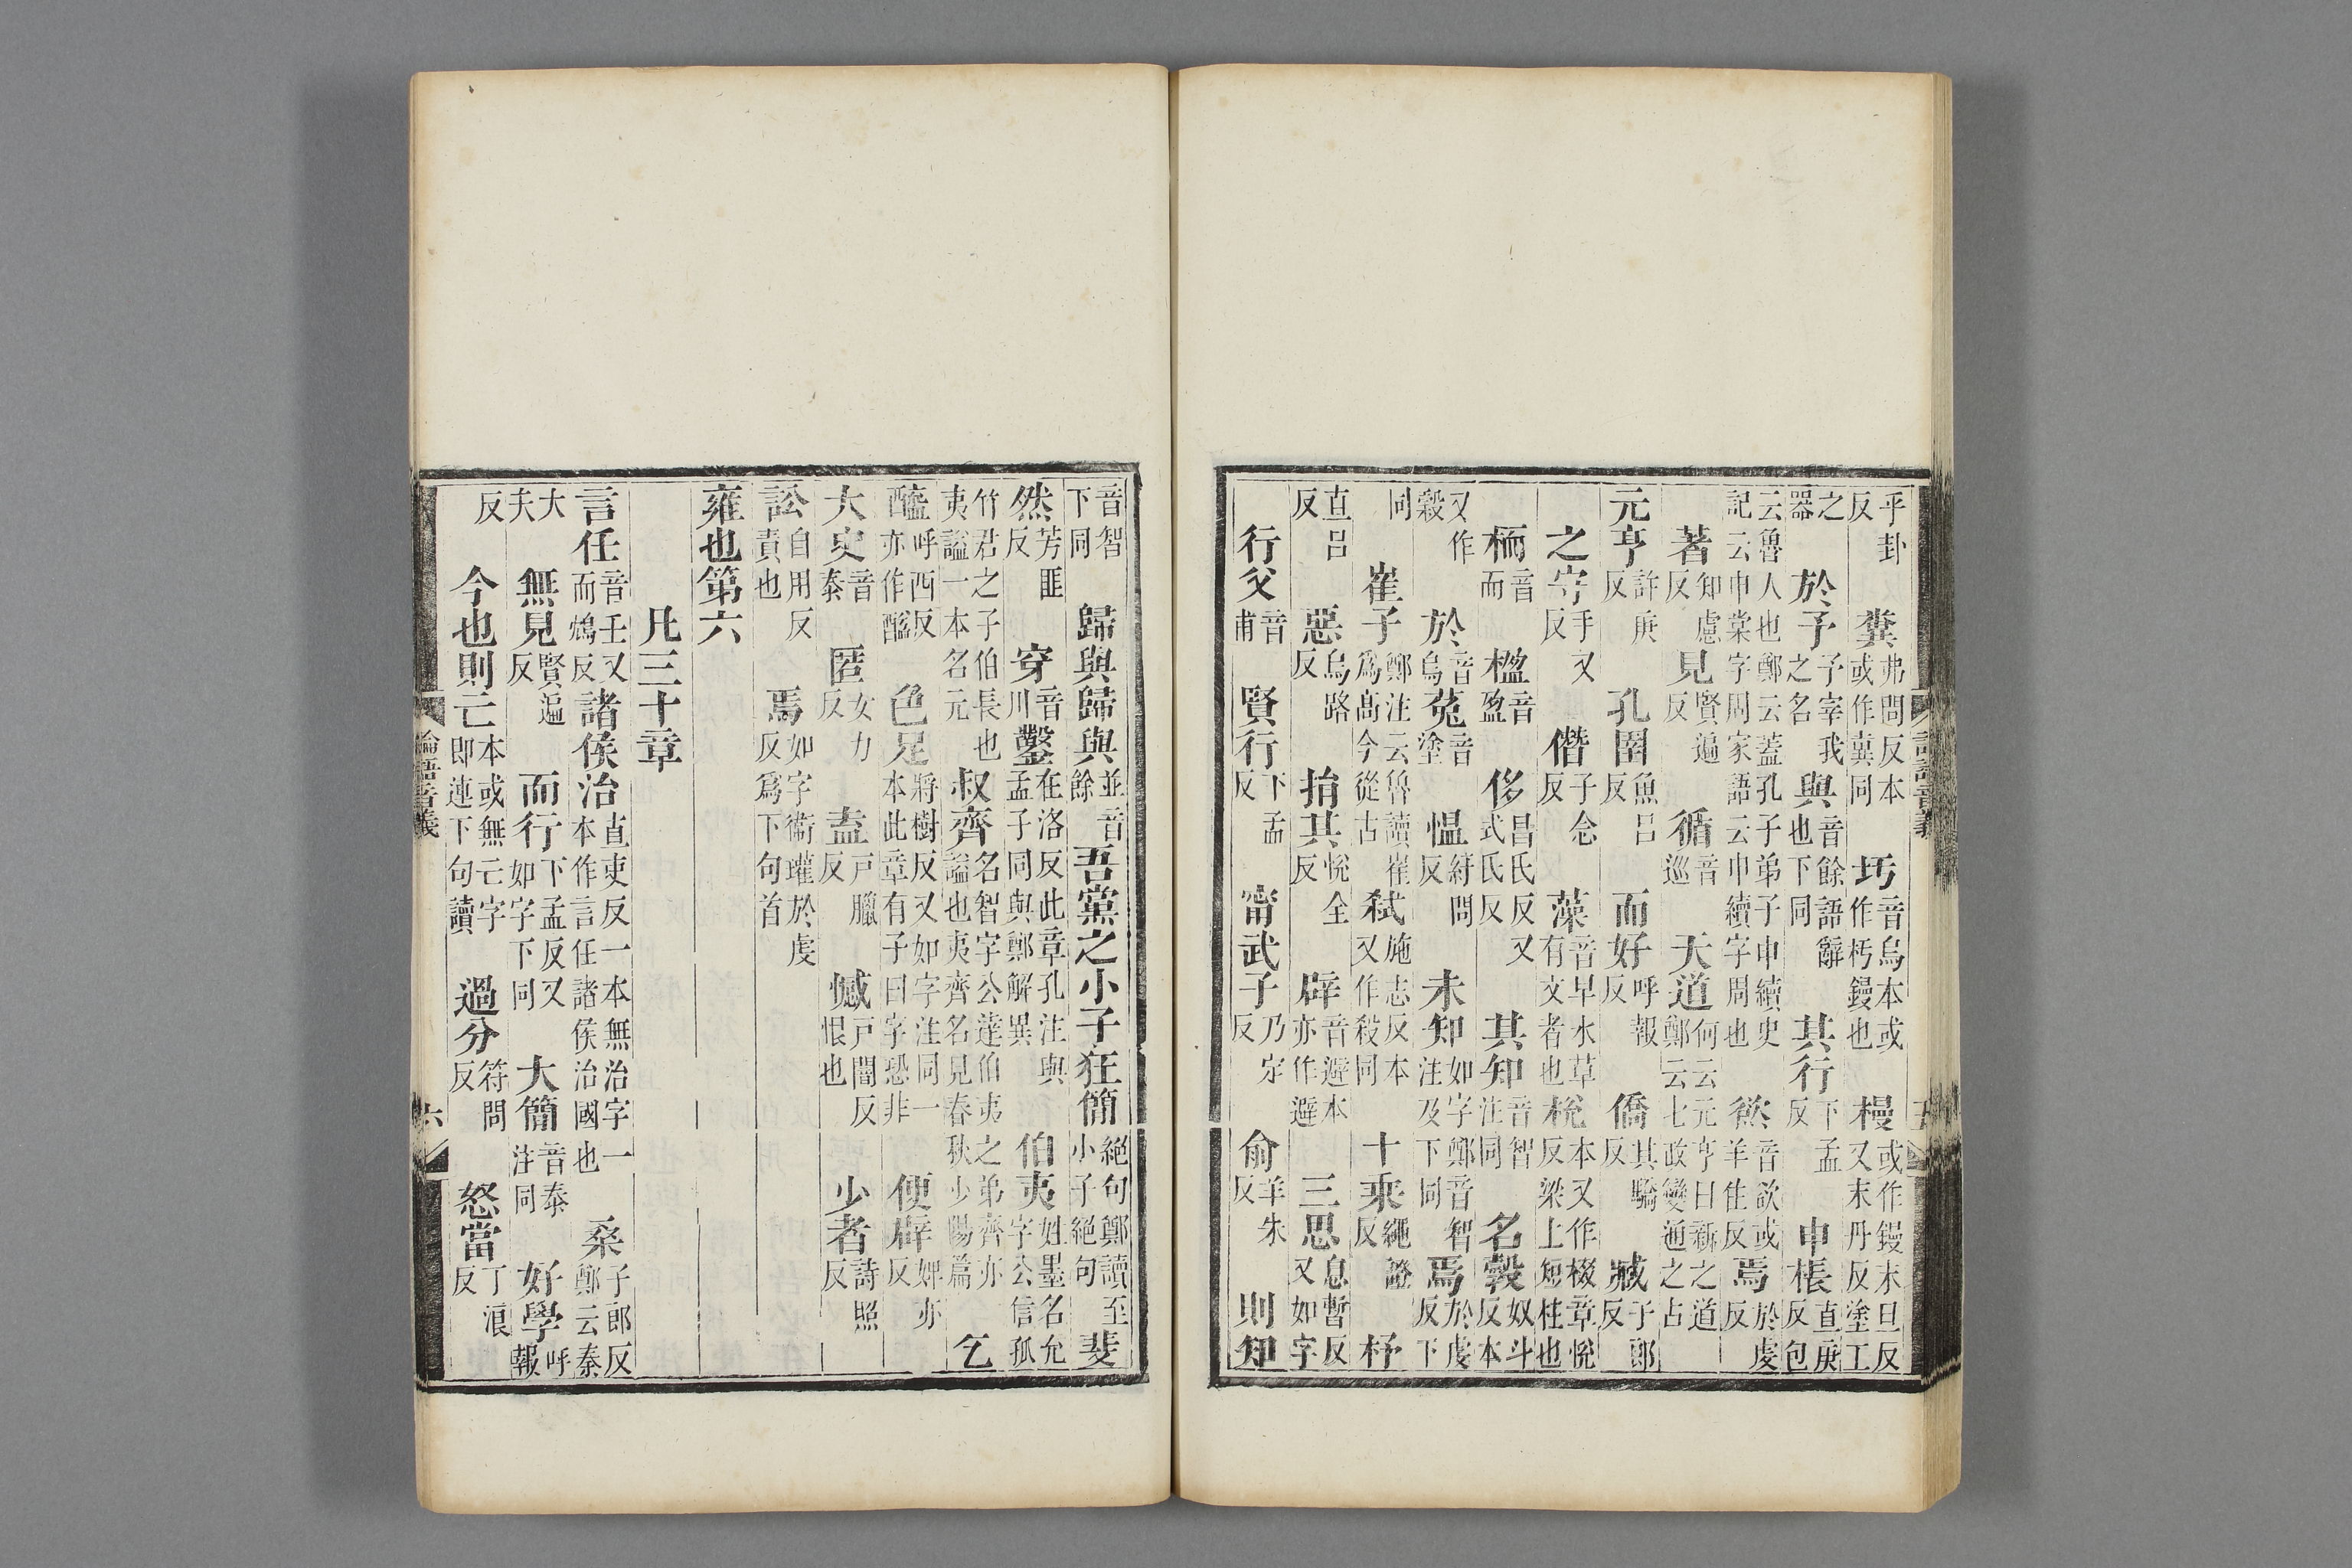 乎卦反 糞弗問反本或作㔬同 圬音烏本或作杇鏝也 槾或作鏝末旦反又末丹反塗工
之器 於予子宰我之名 與音餘語辭也下同 其行下孟反 申棖直庚反包
云魯人也鄭云蓋孔子弟子申續史記云申棠字周家語云申續字周也 慾音欲或羊住反 焉於虔反
著知慮反 見賢遍反 循音巡 天道何云元亨日新之道鄭云七政變通之占
元亨許庚反 孔圉魚呂反 而好呼報反 僑其驕反 臧子郎反
之守手又反 僭子念反 藻音早水草有文者也 梲本又作棳章悅反梁上短柱也
栭音而 楹音盈 侈昌氏反又式氏反 其知音智注同 名穀奴斗反本
又作穀 於音烏 菟音塗 慍紆問反 未知如字鄭音智注及下同 焉於虔反下
同 崔子鄭注云魯讀崔爲高今從古 弑施志反本又作殺同 十乘繩證反 杼
直呂反 惡烏路反 捐其悅全反 辟音避本亦作避 三思息暫反又如字
行父音甫 賢行下孟反 甯武子乃定反 俞羊朱反 則知
音智下同 歸與歸與並音餘 吾黨之小子狂簡絕句鄭讀至小子絕句 斐
然芳匪反 穿音川 鑿在洛反此章孔注與孟子同與鄭解異 伯夷姓墨名允字公信孤
竹君之子伯長也夷謚一本名元 叔齊名智字公達伯夷之弟齊亦謚也夷齊名見春秋少陽篇 乞
醯呼西反亦作醯 色足將樹反又如字注同一本此章有子曰字恐非 便辟婢亦反
大史音泰 匿女力反 盍戸臘反 憾戸闇反恨也 少者詩照反
訟自用反責也 焉如字衛瓘於虔反爲下句首
雍也第六
凡三十章
言任音壬又而鴆反 諸侯治直吏反一本無治字一本作言任諸侯治國也 桑子郎反鄭云秦
大夫 無見賢遍反 而行下孟反又如字下同 大簡音泰注同 好學呼報
反 今也則亡本或無亡字即連下句讀 過分符問反 怒當丁浪反
論語音義
六